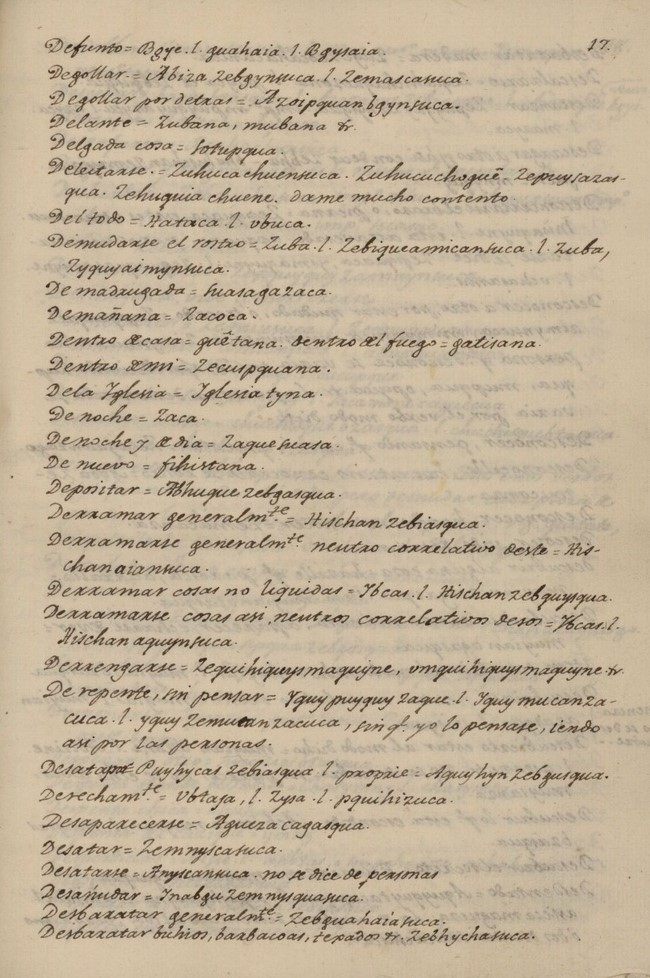 17.
Defunto = Bgye. l. guahaia. l. Bgysaia.
Degollar = Abiza zebgynsuca. l. Zemascasuca.
Degollar por detras = Azoipquan bgynsuca.
Delante = Zubana, mubana &r.
Delgada cosa = sotupqua.
Deleitarse = Zuhuca chuensuca. Zuhucuchoguē. Zepuysazas-
qua. Zehuquia chuene. dame mucho contento
Del todo = Hataca. l. vbuca.
Demudarse el rostro = Zuba. l. Zebiqueamicansuca. l. Zuba,
zyquyaimynsuca.
De madrugada = suasagazaca.
De mañana = Zacoca.
Dentro de casa = guêtana. dentro del fuego = gatisana.
Dentro de mi = Zecuspquana.
De la Yglesia = Yglesia tyna.
De noche = Zaca.
De noche y de dia = Zaque suasa.
De nuevo = fihistana.
Depositar = Abhuque zebgasqua.
Derramar generalm.te = Hischan zebiasqua.
Derramarse generalm.te neutro correlativo deste = His-
chan aiansuca.
Derramar cosas no liquidas = Ybcas. l. Hischan zebquysqua.
Derramarse cosas asi, neutros correlativos desos = Ybcas. l.
Hischan aquynsuca.
Derrengarse = Zequihiquys maquyne, vmquihiquys maquyne &r.
De repente, sin pensar = Yquy puyquy zaque. l. Yquy mucanza-
cuca. l. yquy zemucanzacuca, sin q. yo lo pensase, iendo
asi por las personas.
Puyhycas zebiasqua l. proprie = Aquyhyn zebgusqua.
Derecham.te = Vbtasa, l. Zysa. l. pquihizuca.
Desaparecerse = Agueza cagasqua.
Desatar = Zemnyscasuca.
Desatarse = Anyscansuca. no se dice de personas
Desañudar = Inabgu zemnysquasuca.
Desbaratar generalm.te = Zebguahaiasuca.
Desbaratar buhios, barbacoas, tepados &r. Zebhychasuca.